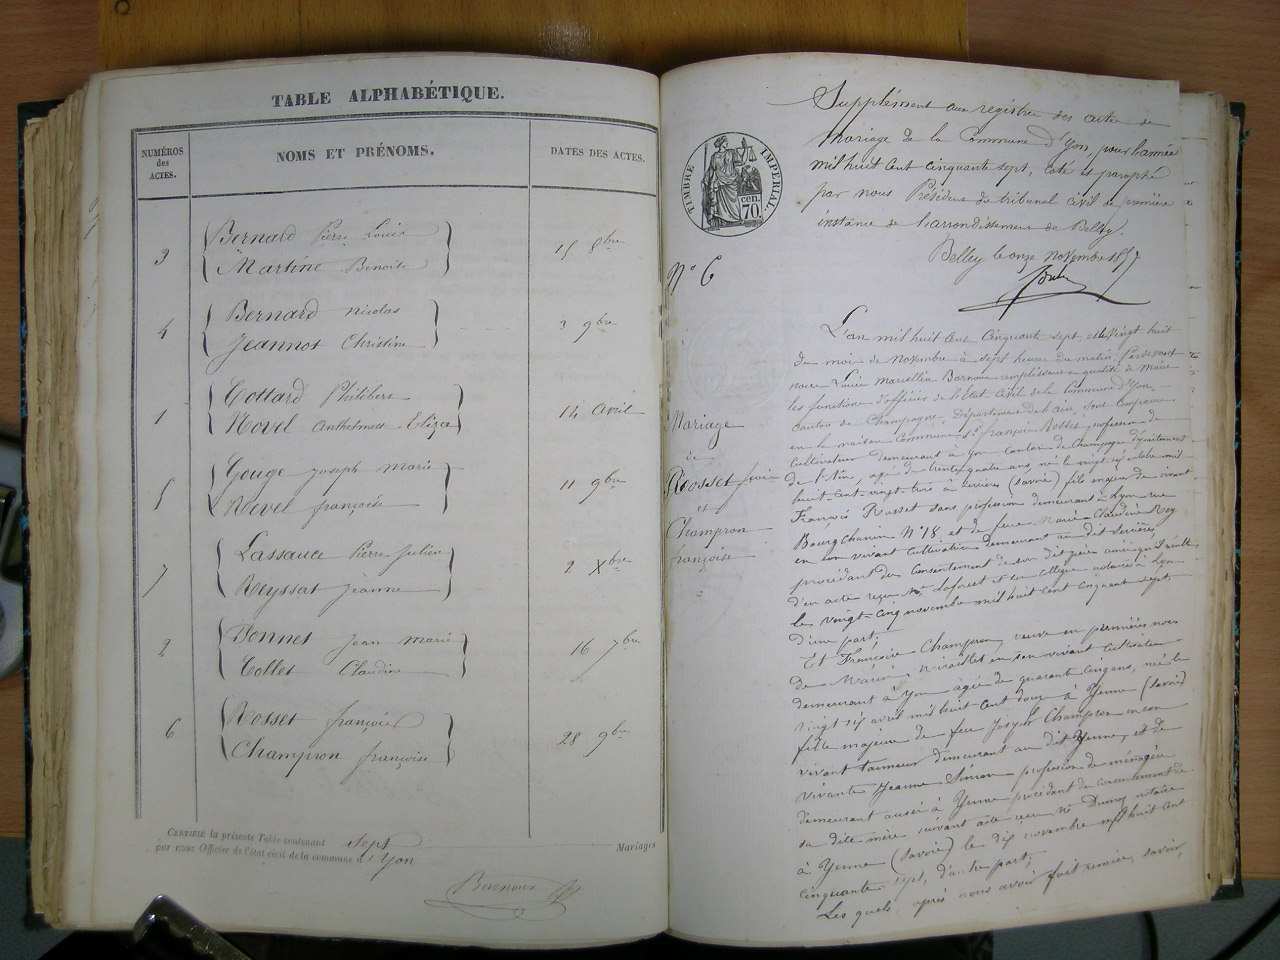 TABLE ALPHABÉTIQUE.
NUMÉROS
des
ACTES.
NOMS ET PRÉNOMS.
DATES DES ACTES.
3
Bernard Pierre Louis
Martine Benoite
15 8bre
4
Bernard Nicolas
Jeannot Christine
3 9bre
1
Gottard Philibert
Novel Anthelmette Eliza
14 avril
5
Gouge Joseph Marie
Nevel françoise
11 9bre
7
Lassauce Pierre Julien
Reyssat Jeanne
2 Xbre
2
Ponnet Jean Marie
Collet Claudine
16 7bre
6
Rosset françois
Champron françoise
28 9bre
CERTIFIÉ la présente Table contenant sept Mariages
par nous Officier de l'état civil de la commune d'Yon
Barnoux
Supplément au registre des actes de
Mariage de la Commune d'Yon, pour l'année
mil huit cent cinquante sept, coté et paraphé
par nous Président du tribunal civil de première
instance de l'arrondissement de Belley.
Belley le onze novembre 1857
TIMBRE IMPÉRIAL
cen.
70.
N° 6
Mariage
de
Rosset françois
et
Champron
françoise
L'an mil huit cent cinquante sept et le vingt huit
du mois de Novembre à sept heures du matin, Pardevant
nous Louis Marcellin Barnoux remplissant en qualité de Maire
les fonctions d'officier de l'État Civil de la Commune d'Yon
canton de Champagne, Département de l'ain, sont comparus
en la maison Commune, Sr. françois Rosset, profession de
Cultivateur demeurant à Yon canton de Champagne département
de l'Ain, âgé de trente quatre ans, né le vingt octobre mil
huit-cent-vingt-trois à (Savoie) fils majeur de vivant
François Rosset sans profession demeurant à Lyon rue
Bourgchanin N° 18 et de feue Marie Claudine Rey
en son vivant cultivatrice demeurant au dit
procédant du consentement de son dit père ainsi qu'il résulte
d'un acte reçu Me Laforest et son collègue notaires à Lyon
le vingt-cinq novembre mil huit cent cinquante sept,
d'une part;
Et Françoise Champron, veuve en premières noces
de Marin en son vivant cultivateur
demeurant à Yon âgée de quarante cinq ans, née le
vingt six avril mil huit cent douze à Yenne (Savoie)
fille majeure de feu Joseph Champron en son
vivant tanneur demeurant au dit Yenne, et de
vivante Jeanne Simon profession de ménagère
demeurant aussi à Yenne procédant du consentement de
sa dite mère suivant acte reçu Me Dumoz notaire
à Yenne (Savoie) le dix novembre mil huit cent
cinquante sept, d'autre part;
Les quels, après nous avoir fait remise, savoir,